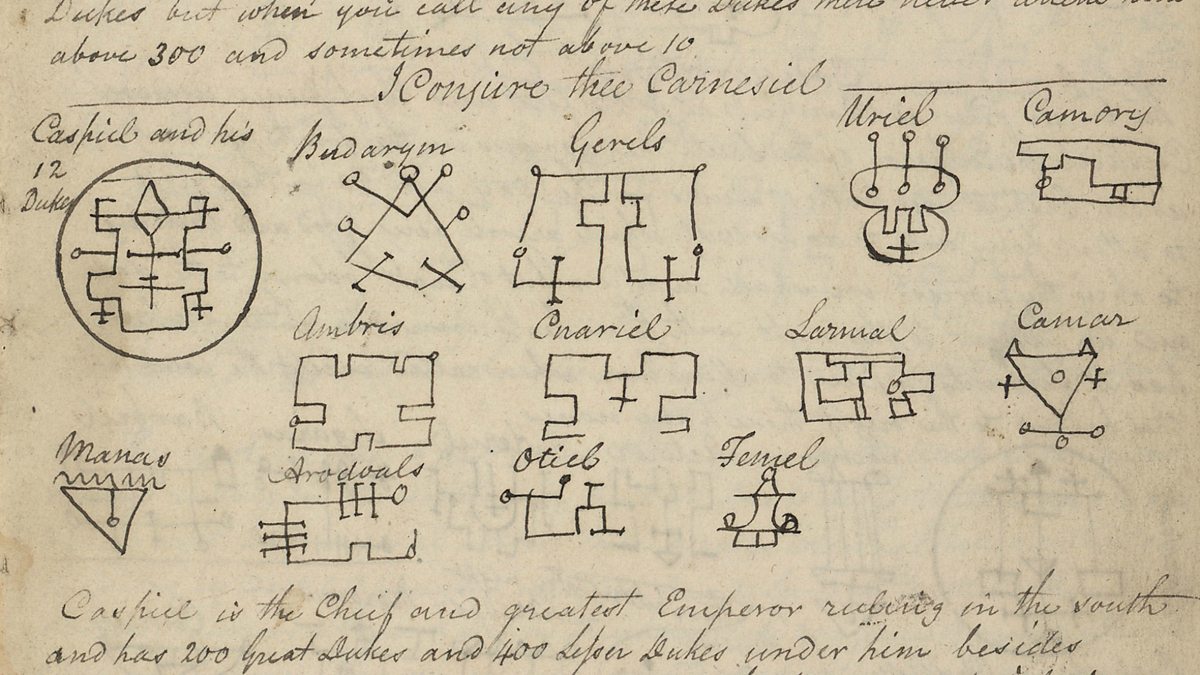 Dukes but when you call any of these Dukes there never
above 300 and sometimes not above 10
I Conjure thee Carnesiel
Caspiel and his
12
Dukes
Budarym
Gerels
Uriel
Camory
Ambris
Cnariel
Larmal
Camar
Manas
Arodvals
Otiel
Femel
Caspiel is the Chief and greatest Emperor ruling in the south
and has 200 Great Dukes and 400 Lesser Dukes under him besides